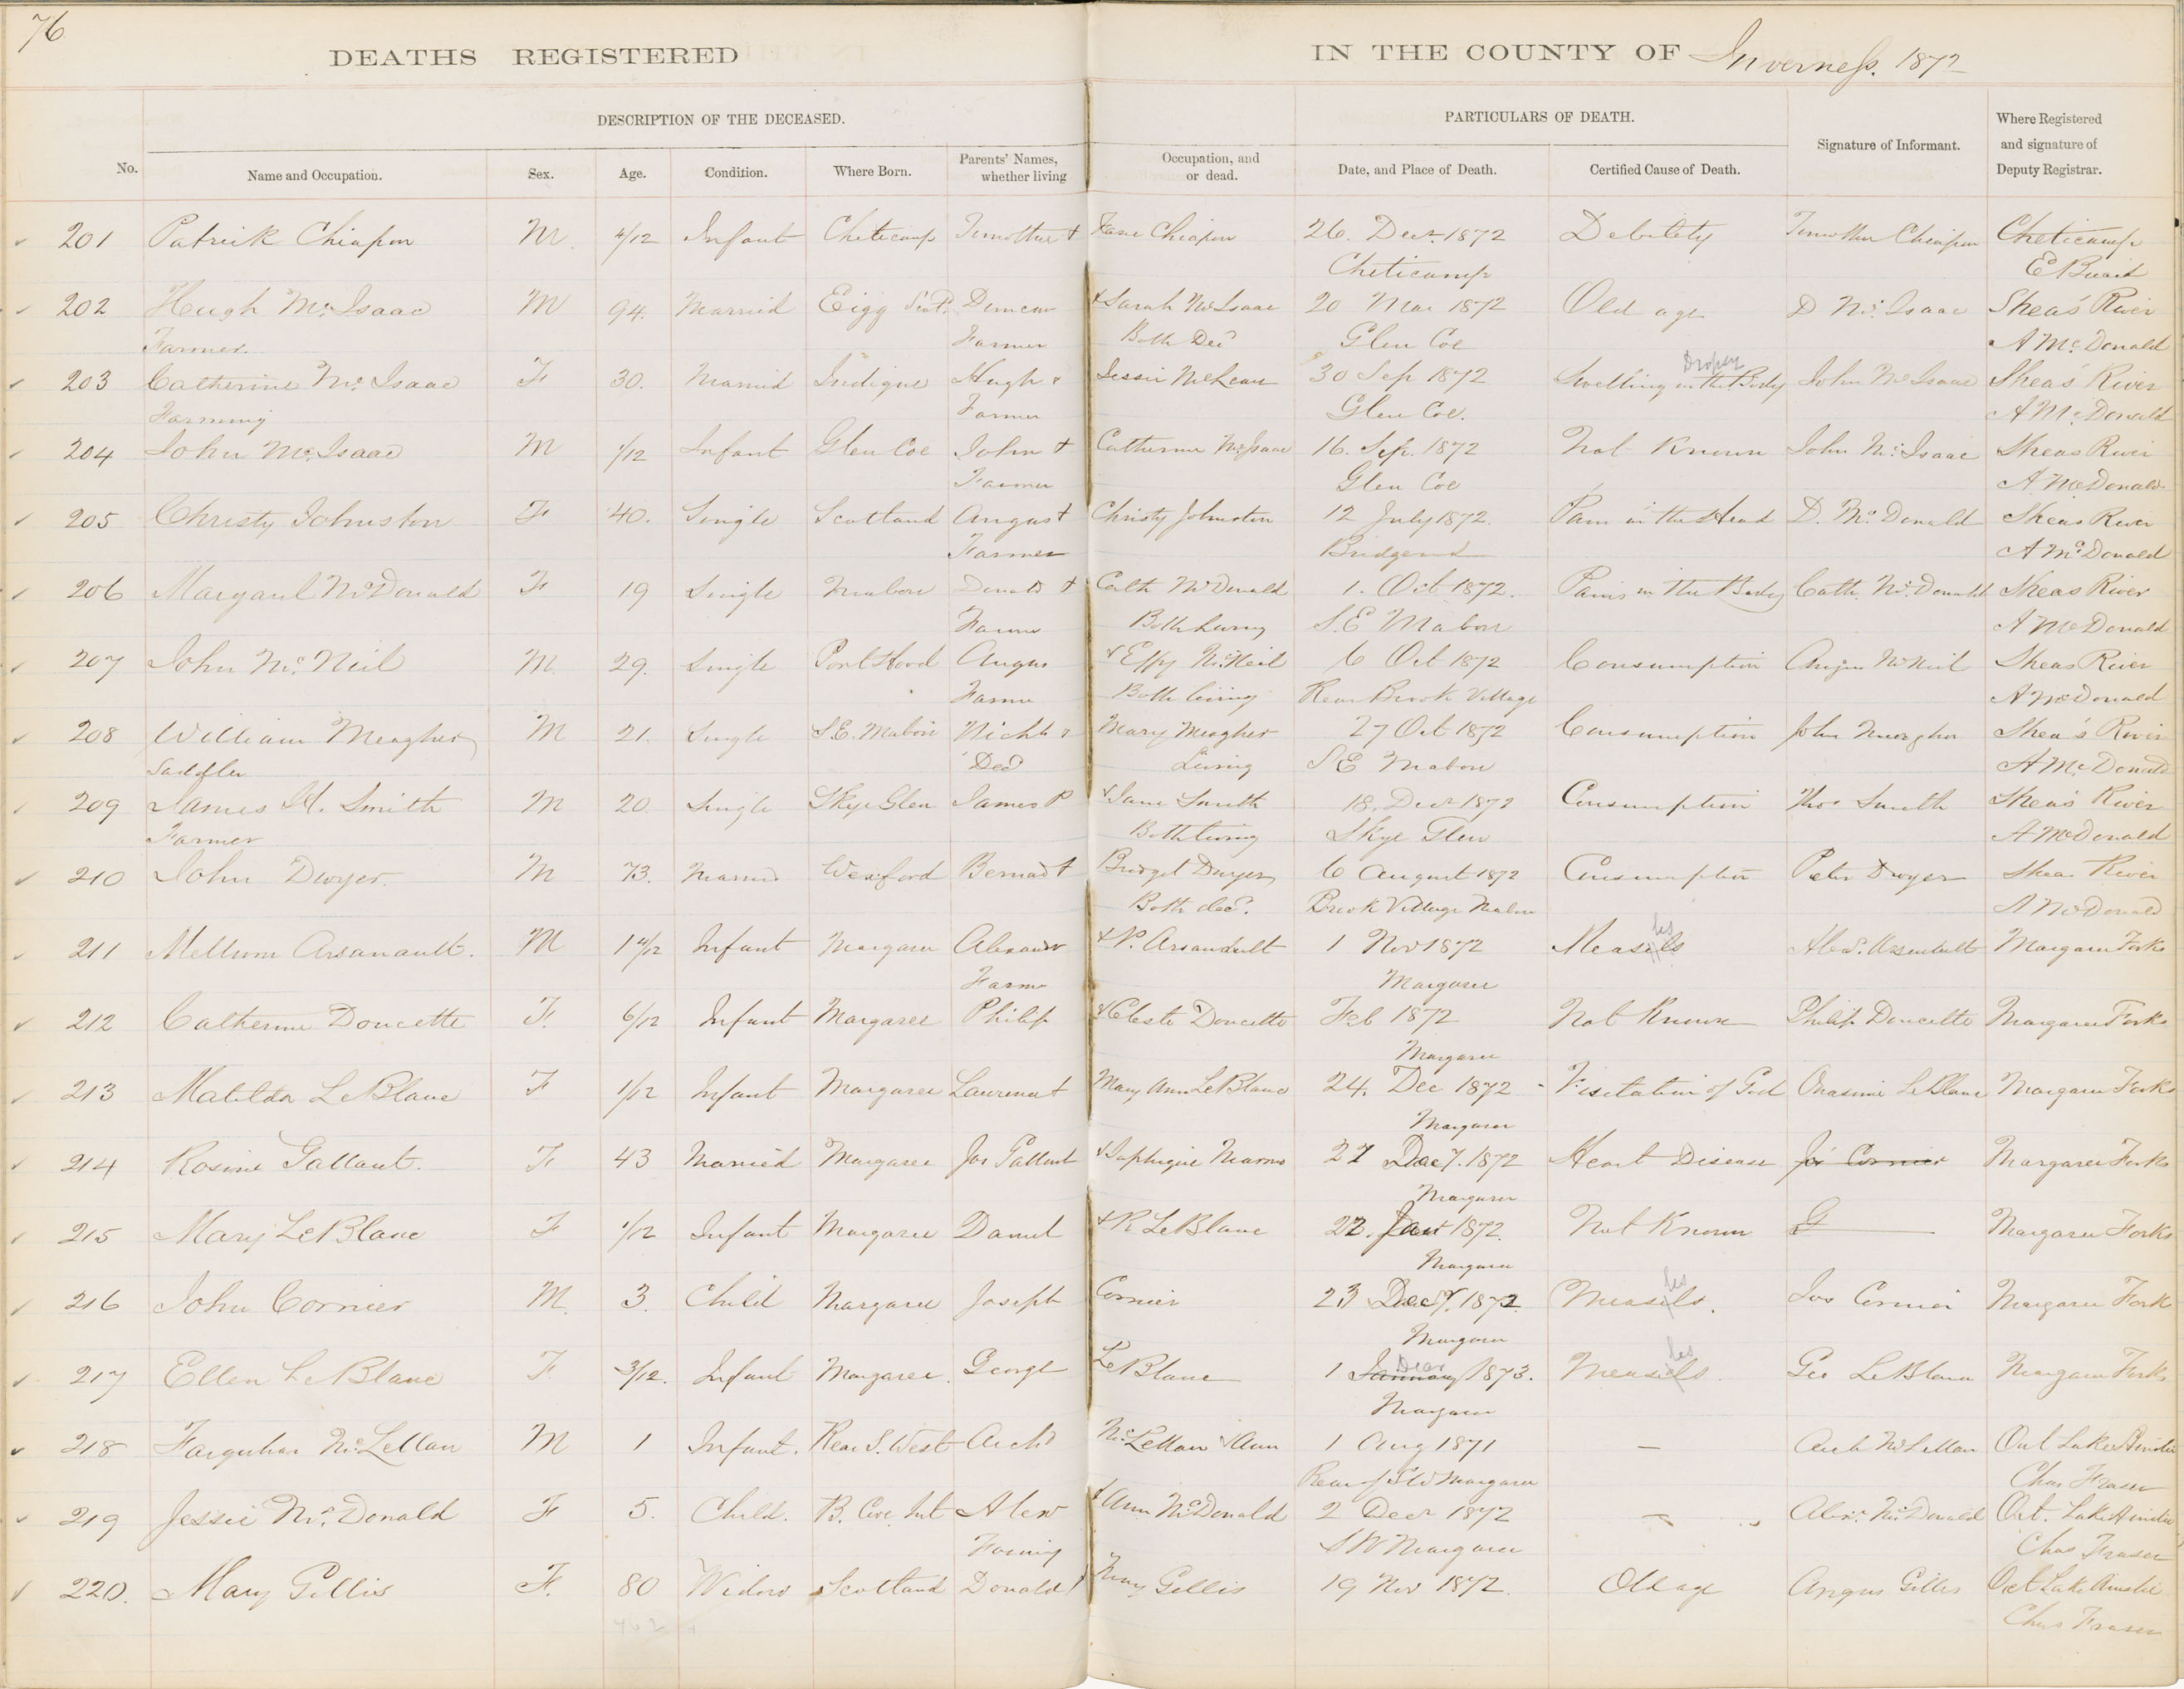 76
DEATHS REGISTERED IN THE COUNTY OF Inverness. 1872
DESCRIPTION OF THE DECEASED. PARTICULARS OF DEATH.
No. Name and Occupation. Sex. Age. Condition. Where Born. Parents' Names, whether living Occupation, and or dead. Date, and Place of Death. Certified Cause of Death. Signature of Informant. Where Registered and signature of Deputy Registrar.
201 Patrick Chiapon M. 4/12 Infant Cheticamp Timothee + Jane Chiapon 26. Decr. 1872 Debility Timothee Chiapon Cheticamp
Cheticamp E
202 Hugh McIsaac M 94. Married Eigg Scot. Duncan + Sarah McIsaac 20 Mar 1872 Old age D McIsaac Sheas' River
Farmer. Farmer Both Decd Glen Coe A McDonald
203 Catherine McIsaac F 30. Married Indique Hugh + Jessie McLean 30 Sep 1872 Swelling in the Body Dropsy John McIsaac Sheas' River
Farming Farmer Glen Coe. A McDonald
204 John McIsaac M 1/12 Infant Glen Coe John + Catherine McIsaac 16. Sep. 1872 Not Known John McIsaac Sheas River
Farmer Glen Coe A McDonald
205 Christy Johnston F 40. Single Scotland Angus + Christy Johnston 12 July 1872. Pain in the Head D. McDonald Sheas River
Farmer Bridgend A McDonald
206 Margaret McDonald F 19 Single Mabou Donald + Cath McDonald 1. Oct 1872. Pains in the Body Cath. McDonald Sheas River
Farmer Both Living S.E Mabou A McDonald
207 John McNeil M. 29. Single Port Hood Angus + Effy McNeil 6 Oct 1872 Consumption Angus McNeil Sheas River
Farmer Both living Rear Brook Village A McDonald
208 William Meagher M 21. Single S.E. Mabou Nichls + Mary Meagher 27 Oct 1872 Consumption John Meagher Shea's River
Saddler Decd Living S E Mabou A McDonald
209 James H. Smith M 20. Single Skye Glen James P + Jane Smith 18. Decr 1872 Consumption Thos Smith Sheas' River
Farmer Both living Skye Glen A McDonald
210 John Dwyer. M 73. Married Wexford Bernad + Bridget Dwyer 6 August 1872 Consumption Peter Dwyer Sheas River
Both decd. Brook Village Mabou A McDonald
211 Arsanault. M 1 4/12 Infant Margaree Alexander + P. Arsanault 1 Nov 1872 Measels les Alexr. Margaree Forks
Farmer Margaree
212 Catherine Doucette F. 6/12 Infant Margaree Philip + Celeste Doucette Feb 1872 Not Known Philip Doucette Margaree Forks
Margaree
213 Matilda LeBlanc F 1/12 Infant Margaree Laurence + Mary Ann LeBlanc 24. Dec 1872 - Visitation of God Onasime LeBlanc Margaree Forks
Margaree
214 Rosine Gallant. F 43 Married Margaree Jos Gallant + 27 Decr. 1872 Heart Disease Jos Cormier Margaree Forks
Margaree
215 Mary LeBlanc F 1/12 Infant Margaree Daniel + R LeBlanc 22. 1872. Not Known Margaree Forks
Margaree
216 John Cormier M. 3. Child Margaree Joseph Cormier 23 Decr. 1872. Measels. les Jos Cormier Margaree Fork
Margaree
217 Ellen LeBlanc F 3/12. Infant Margaree. George LeBlanc 1 January Decr 1873. Measels. les Geo LeBlanc Margaree Forks
Margaree
218 Farquhar McLellan M 1 Infant. Rear S. West Archd McLellan + Ann 1 Aug 1871 — Arch McLellan Out Lake Ainslie
Rear of SW Margaree Chas Fraser
219 Jessie McDonald F 5. Child. B. Cove Int Alexr + Ann McDonald 2 Decr 1872 — Alexr. McDonald Out. Lake Ainslie
Farming S W Margaree Chas Fraser
220. Mary Gillis F. 80 Widow Scotland Donald + Mary Gillis 19 Nov 1872. Old age Angus Gillis Out Lake Ainslie
Chas Fraser